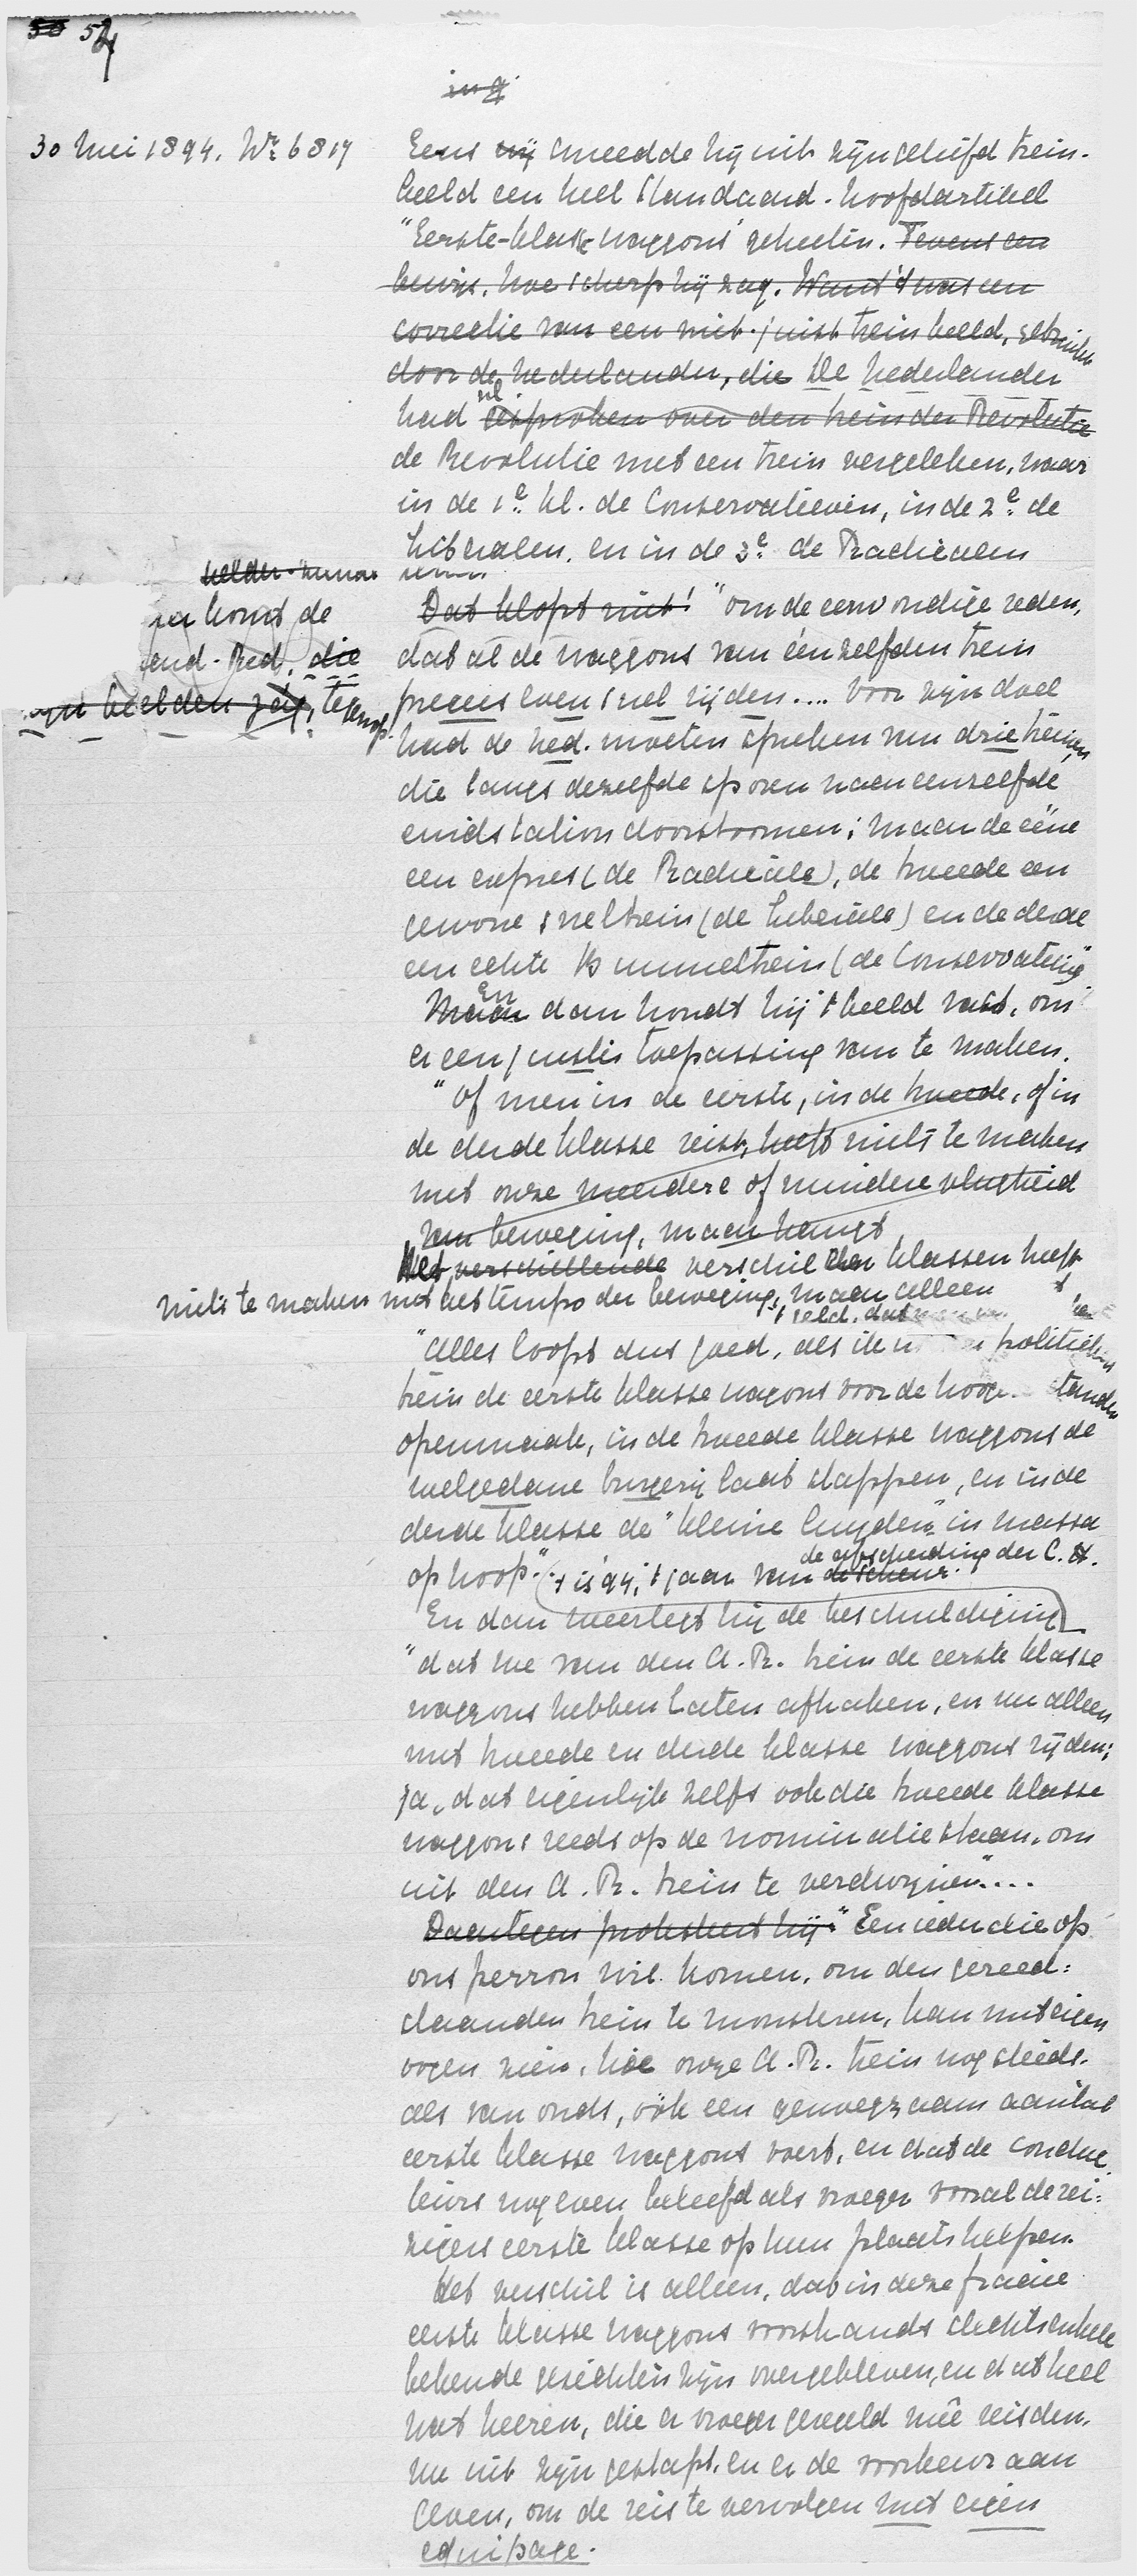 50 54
in 't
30 Mei 1894. Nr 6819
Eens hij smeedde hij uit zijn geliefd trein-
beeld een heel Standaard-hoofdartikel
"Eerste-klasse waggons" geheeten. Tevens een
bewijs, hoe scherp hij zag. Want 't was een
correctie van een niet-juist treinbeeld, gebruikt
door de Nederlander, die De Nederlander
had nl. gesproken over den trein der Revolutie
de Revolutie met een trein vergeleken, waar
in de 1e kl. de Conservatieven, in de 2e de
liberalen, en in de 3e de Radicalen
helder
komt de
Red. die
zijn beelden zag, tegenop.
Dat klopt niet! "om de eenvoudige reden,
dat al de waggons van éénzelfden trein
precies even snel rijden.... Voor zijn doel
had de Ned. moeten spreken van drie treinen,
die langs dezelfde sporen naar eenzelfde
eindstation doorstoomen; maar de ééne
een expres (de Radicale), de tweede een
gewone sneltrein (de liberale) en de derde
een echte bummeltrein (de Conservatieve)"
Maar En dan houdt hij 't beeld vast, om
er een juiste toepassing van te maken.
"Of men in de eerste, in de tweede, of in
de derde klasse reist, heeft niets te maken
met onze meerdere of mindere vlugheid
van beweging, maar hangt
Het verschillende verschil der klassen heeft
niets te maken met het tempo der beweging, maar alleen
geld, dat
"Alles loopt dus goed, als ik politieken
trein de eerste klasse wagons voor de standen
openmaak, in de tweede klasse waggons de
welgedane burgerij laat stappen, en in de
derde klasse de "kleine luyden" in massa
ophoop." ('t is '94, 't jaar van de scheur. de afscheiding der C. H.
En dan weerlegt hij de beschuldiging
"dat we van den A.R. trein de eerste klasse
waggons hebben laten afhaken, en nu alleen
met tweede en derde klasse waggons rijden;
ja, dat eigenlijk zelfs ook die tweede klasse
waggons reeds op de nominatie staan, om
uit den A.R. trein te verdwijnen"....
Daartegen protesteert hij: "Een ieder die op
ons perron wil komen, om den gereed-
staanden trein te monsteren, kan met eigen
oogen zien, hoe onze A.R. trein nog steeds,
als van ouds, óók een genoegzaam aantal
eerste klasse waggons voert, en dat de conduc-
teurs nog even beleefd als vroeger vooral de rei-
zigers eerste klasse op hun plaats helpen.
Het verschil is alleen, dat in deze fraaie
eerste klasse waggons voorshands slechts enkele
bekende gezichten zijn overgebleven, en dat heel
wat heeren, die er vroeger geregeld mêe reisden,
nu uit zijn gestapt, en er de voorkeur aan
geven, om de reis te vervolgen met eigen
equipage.